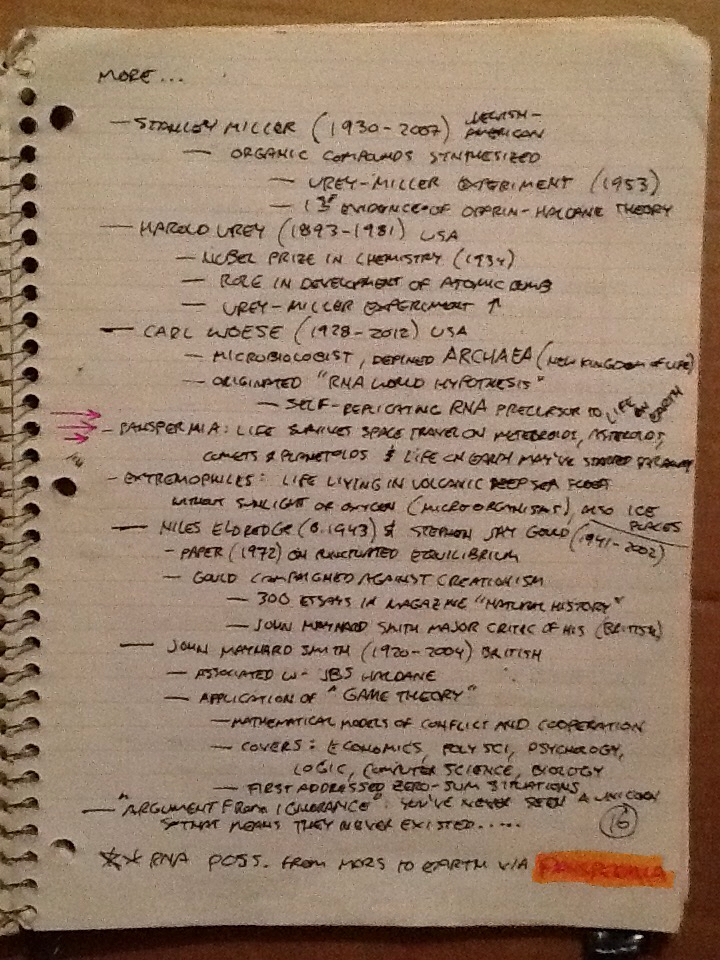 MORE...
— STANLEY MILLER (1930-2007) JEWISH-
AMERICAN
— ORGANIC COMPOUNDS SYNTHESIZED
— UREY-MILLER EXPERIMENT (1953)
— 1ST EVIDENCE OF OPARIN-HALDANE THEORY
— HAROLD UREY (1893-1981) USA
— NOBEL PRIZE IN CHEMISTRY (1934)
— ROLE IN DEVELOPMENT OF ATOMIC BOMB
— UREY-MILLER EXPERIMENT ↑
— CARL WOESE (1928-2012) USA
— MICROBIOLOGIST, DEFINED ARCHAEA (NEW KINGDOM OF LIFE)
— ORIGINATED "RNA WORLD HYPOTHESIS"
— SELF-REPLICATING RNA PRECURSOR TO LIFE ON EARTH
- PANSPERMIA: LIFE SURVIVES SPACE TRAVEL ON METEOROIDS, ASTEROIDS,
COMETS & PLANETOIDS & LIFE ON EARTH MAY'VE STARTED FARAWAY
- EXTREMOPHILES: LIFE LIVING IN VOLCANIC DEEP SEA FLOOR
WITHOUT SUNLIGHT OR OXYGEN (MICROORGANISMS), ALSO ICE
PLACES
— NILES ELDREDGE (B.1943) & STEPHEN JAY GOULD (1941-2002)
- PAPER (1972) ON PUNCTUATED EQUILIBRIUM
- GOULD CAMPAIGNED AGAINST CREATIONISM
— 300 ESSAYS IN MAGAZINE "NATURAL HISTORY"
— JOHN MAYNARD SMITH MAJOR CRITIC OF HIS (BRITISH)
— JOHN MAYNARD SMITH (1920-2004) BRITISH
— ASSOCIATED W- JBS HALDANE
— APPLICATION OF "GAME THEORY"
— MATHEMATICAL MODELS OF CONFLICT AND COOPERATION
— COVERS: ECONOMICS, POLY SCI, PSYCHOLOGY,
LOGIC, COMPUTER SCIENCE, BIOLOGY
— FIRST ADDRESSED ZERO-SUM SITUATIONS
— "ARGUMENT FROM IGNORANCE": YOU'VE NEVER SEEN A UNICORN
SO THAT MEANS THEY NEVER EXISTED.....
16
** RNA POSS. FROM MARS TO EARTH VIA PANSPERMIA